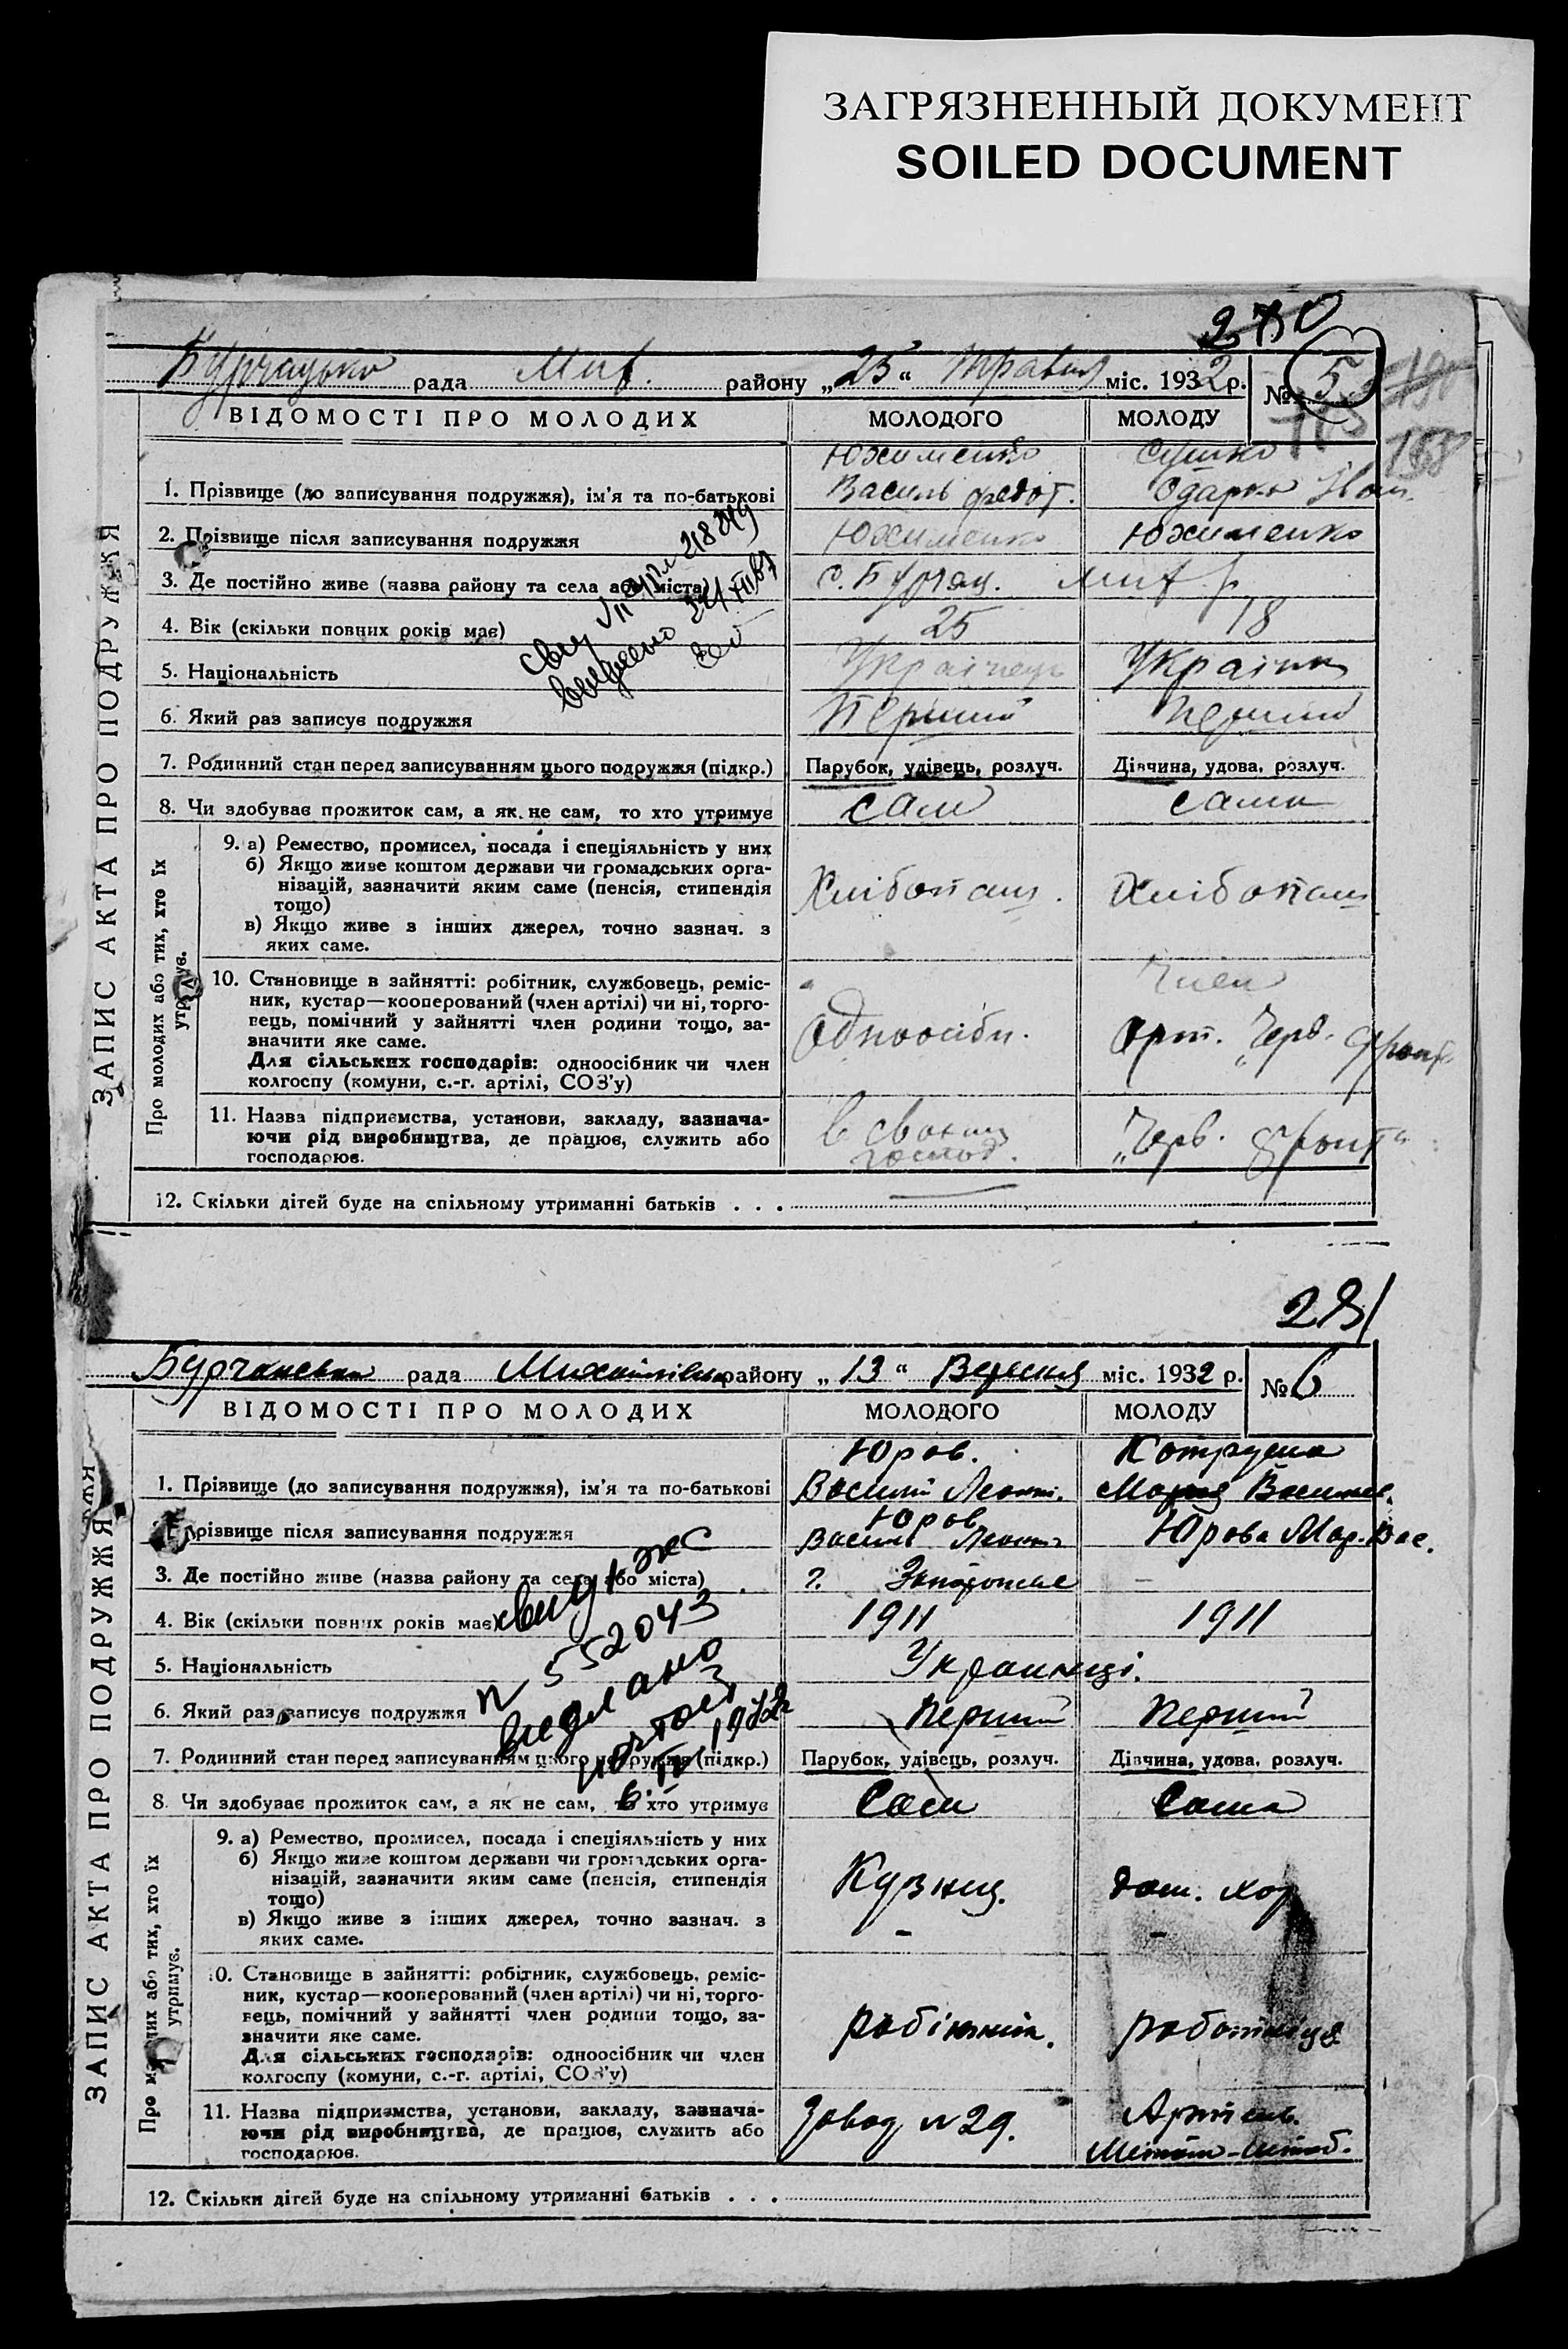 ЗАГРЯЗНЕННЫЙ ДОКУМЕНТ
SOILED DOCUMENT
рада Мих. району „25“ Травня міс. 1932 р. № 5
ВІДОМОСТІ ПРО МОЛОДИХ МОЛОДОГО МОЛОДУ
ЗАПИС АКТА ПРО ПОДРУЖЖЯ
Юхименко Сушко
1. Прізвище (до записування подружжя), ім'я та по-батькові Василь Федот. Одарка Іван.
2. Прізвище після записування подружжя Юхименко Юхименко
3. Де постійно живе (назва району та села або міста) с. Бурчац.
4. Вік (скільки повних років має) 25 18
5. Національність Українець Українка
6. Який раз записує подружжя Перший Перший
7. Родинний стан перед записуванням цього подружжя (підкр.) Парубок, удівець, розлуч. Дівчина, удова, розлуч.
8. Чи здобуває прожиток сам, а як не сам, то хто утримує сам сама
Про молодих або тих, хто їх утримує.
9. а) Ремество, промисел, посада і спеціяльність у них
б) Якщо живе коштом держави чи громадських орга-
нізацій, зазначити яким саме (пенсія, стипендія Хлібопаш. Хлібопаш
тощо)
в) Якщо живе з інших джерел, точно зазнач. з
яких саме.
10. Становище в зайнятті: робітник, службовець, реміс- Член
ник, кустар—кооперований (член артілі) чи ні, торго-
вець, помічний у зайнятті член родини тощо, за- Одноосібн. Арт. „Черв. Фронт“
значити яке саме.
Для сільських господарів: одноосібник чи член
колгоспу (комуни, с.-г. артілі, СОЗ'у)
11. Назва підприємства, установи, закладу, зазнача- в своїм
ючи рід виробництва, де працює, служить або „Черв. Фронт“
господарює. господ.
12. Скільки дітей буде на спільному утриманні батьків . . .
281
Бурчанська рада району „13“ Вересня міс. 1932 р. № 6
ВІДОМОСТІ ПРО МОЛОДИХ МОЛОДОГО МОЛОДУ
ЗАПИС АКТА ПРО ПОДРУЖЖЯ
Юров.
1. Прізвище (до записування подружжя), ім'я та по-батькові Василий Леонт. Мария Васильев.
Юров
Прізвище після записування подружжя Василь Леонт Юрова Мар. Вас.
3. Де постійно живе (назва району та села або міста)
4. Вік (скільки повних років має) 1911 1911
N 552043
5. Національність Украинці.
6. Який раз записує подружжя Перший Перший
7. Родинний стан перед записуванням цього подружжя (підкр.) Парубок, удівець, розлуч. Дівчина, удова, розлуч.
8. Чи здобуває прожиток сам, а як не сам, то хто утримує Сам Сама
Про молодих або тих, хто їх утримує.
9. а) Ремество, промисел, посада і спеціяльність у них
б) Якщо живе коштом держави чи громадських орга-
нізацій, зазначити яким саме (пенсія, стипендія Кузнец. дом. хоз
тощо)
в) Якщо живе з інших джерел, точно зазнач. з
яких саме.
10. Становище в зайнятті: робітник, службовець, реміс-
ник, кустар—кооперований (член артілі) чи ні, торго-
вець, помічний у зайнятті член родини тощо, за- робітник. работніця
значити яке саме.
Для сільських господарів: одноосібник чи член
колгоспу (комуни, с.-г. артілі, СОЗ'у)
11. Назва підприємства, установи, закладу, зазнача- Артель.
ючи рід виробництва, де працює, служить або Завод N 29.
господарює.
12. Скільки дітей буде на спільному утриманні батьків . . .